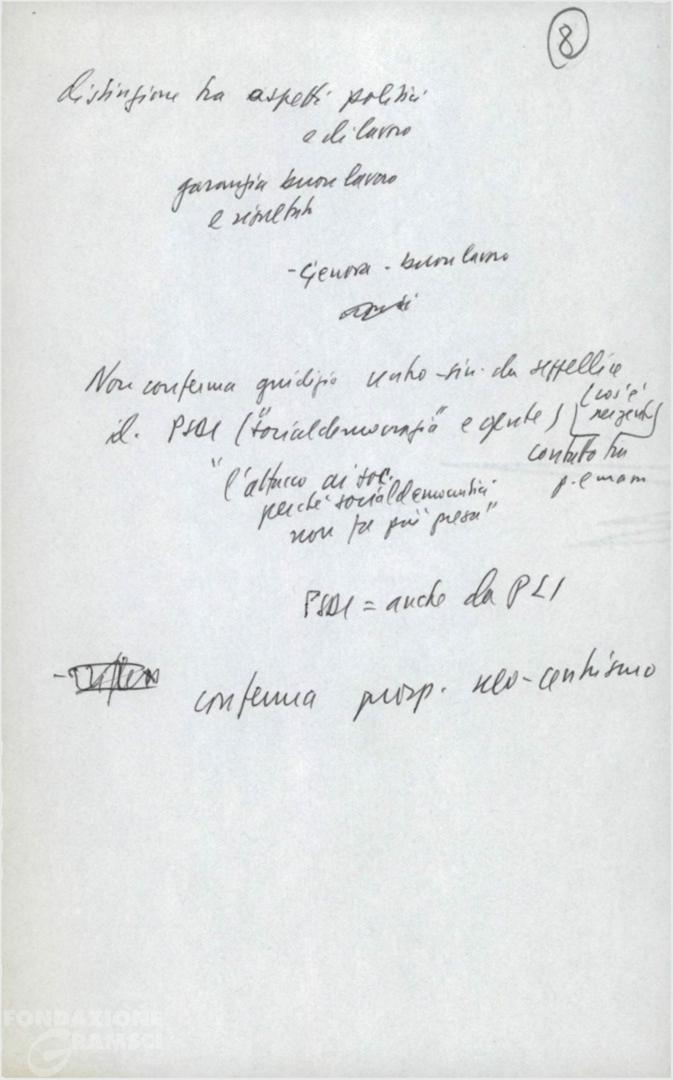 8
distinzione tra aspetti politici
e di lavoro
garanzia buon lavoro
e risultati
- Genova - buon lavoro
Non conferma giudizio centro-sin. da seppellire
il PSDI ("socialdemocrazia" e gente) (cos'è
contatto tra
"l'attacco ai soc.
p. e mam
perché socialdemocratici
non fa più presa"
PSDI = anche da PLI
conferma prosp. neo-centrismo
FONDAZIONE
GRAMSCI